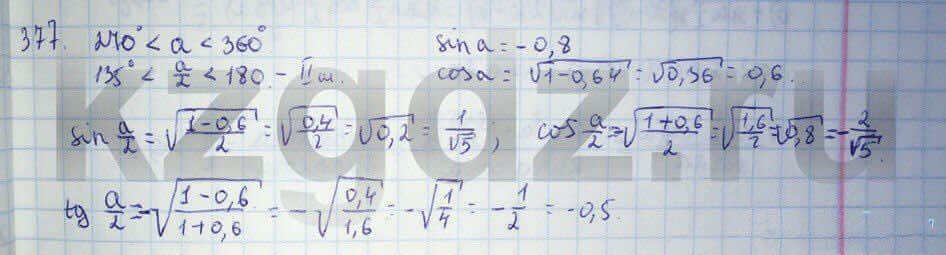 377. 270° < a < 360° sin a = -0,8
135° < a/2 < 180 - II ш. cos a = √(1-0,64) = √0,36 = 0,6.
sin a/2 = √((1-0,6)/2) = √(0,4/2) = √0,2 = 1/√5 ; cos a/2 = -√((1+0,6)/2) = √(1,6/2) = √0,8 = -2/√5.
tg a/2 = -√((1-0,6)/(1+0,6)) = -√(0,4/1,6) = -√(1/4) = -1/2 = -0,5.
kzgdz.ru